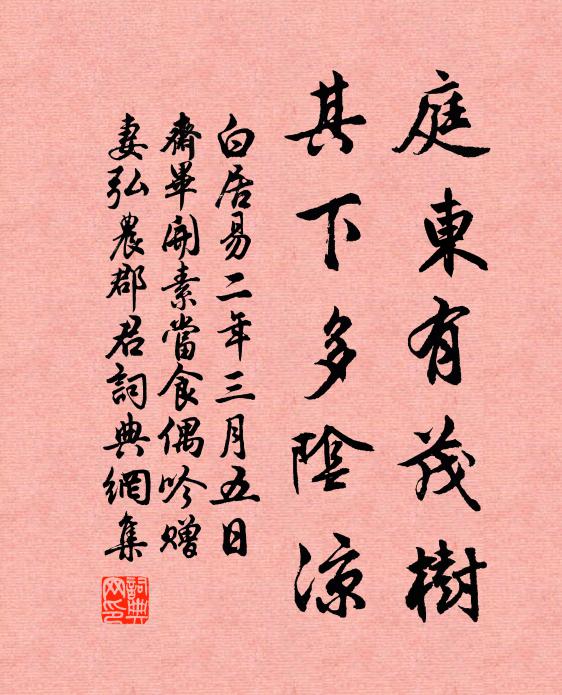 庭東有茂樹
其下多陰涼
白居易二年三月五日
齋畢開素當食偶吟贈
妻弘農郡君詞典網集
詞典網印